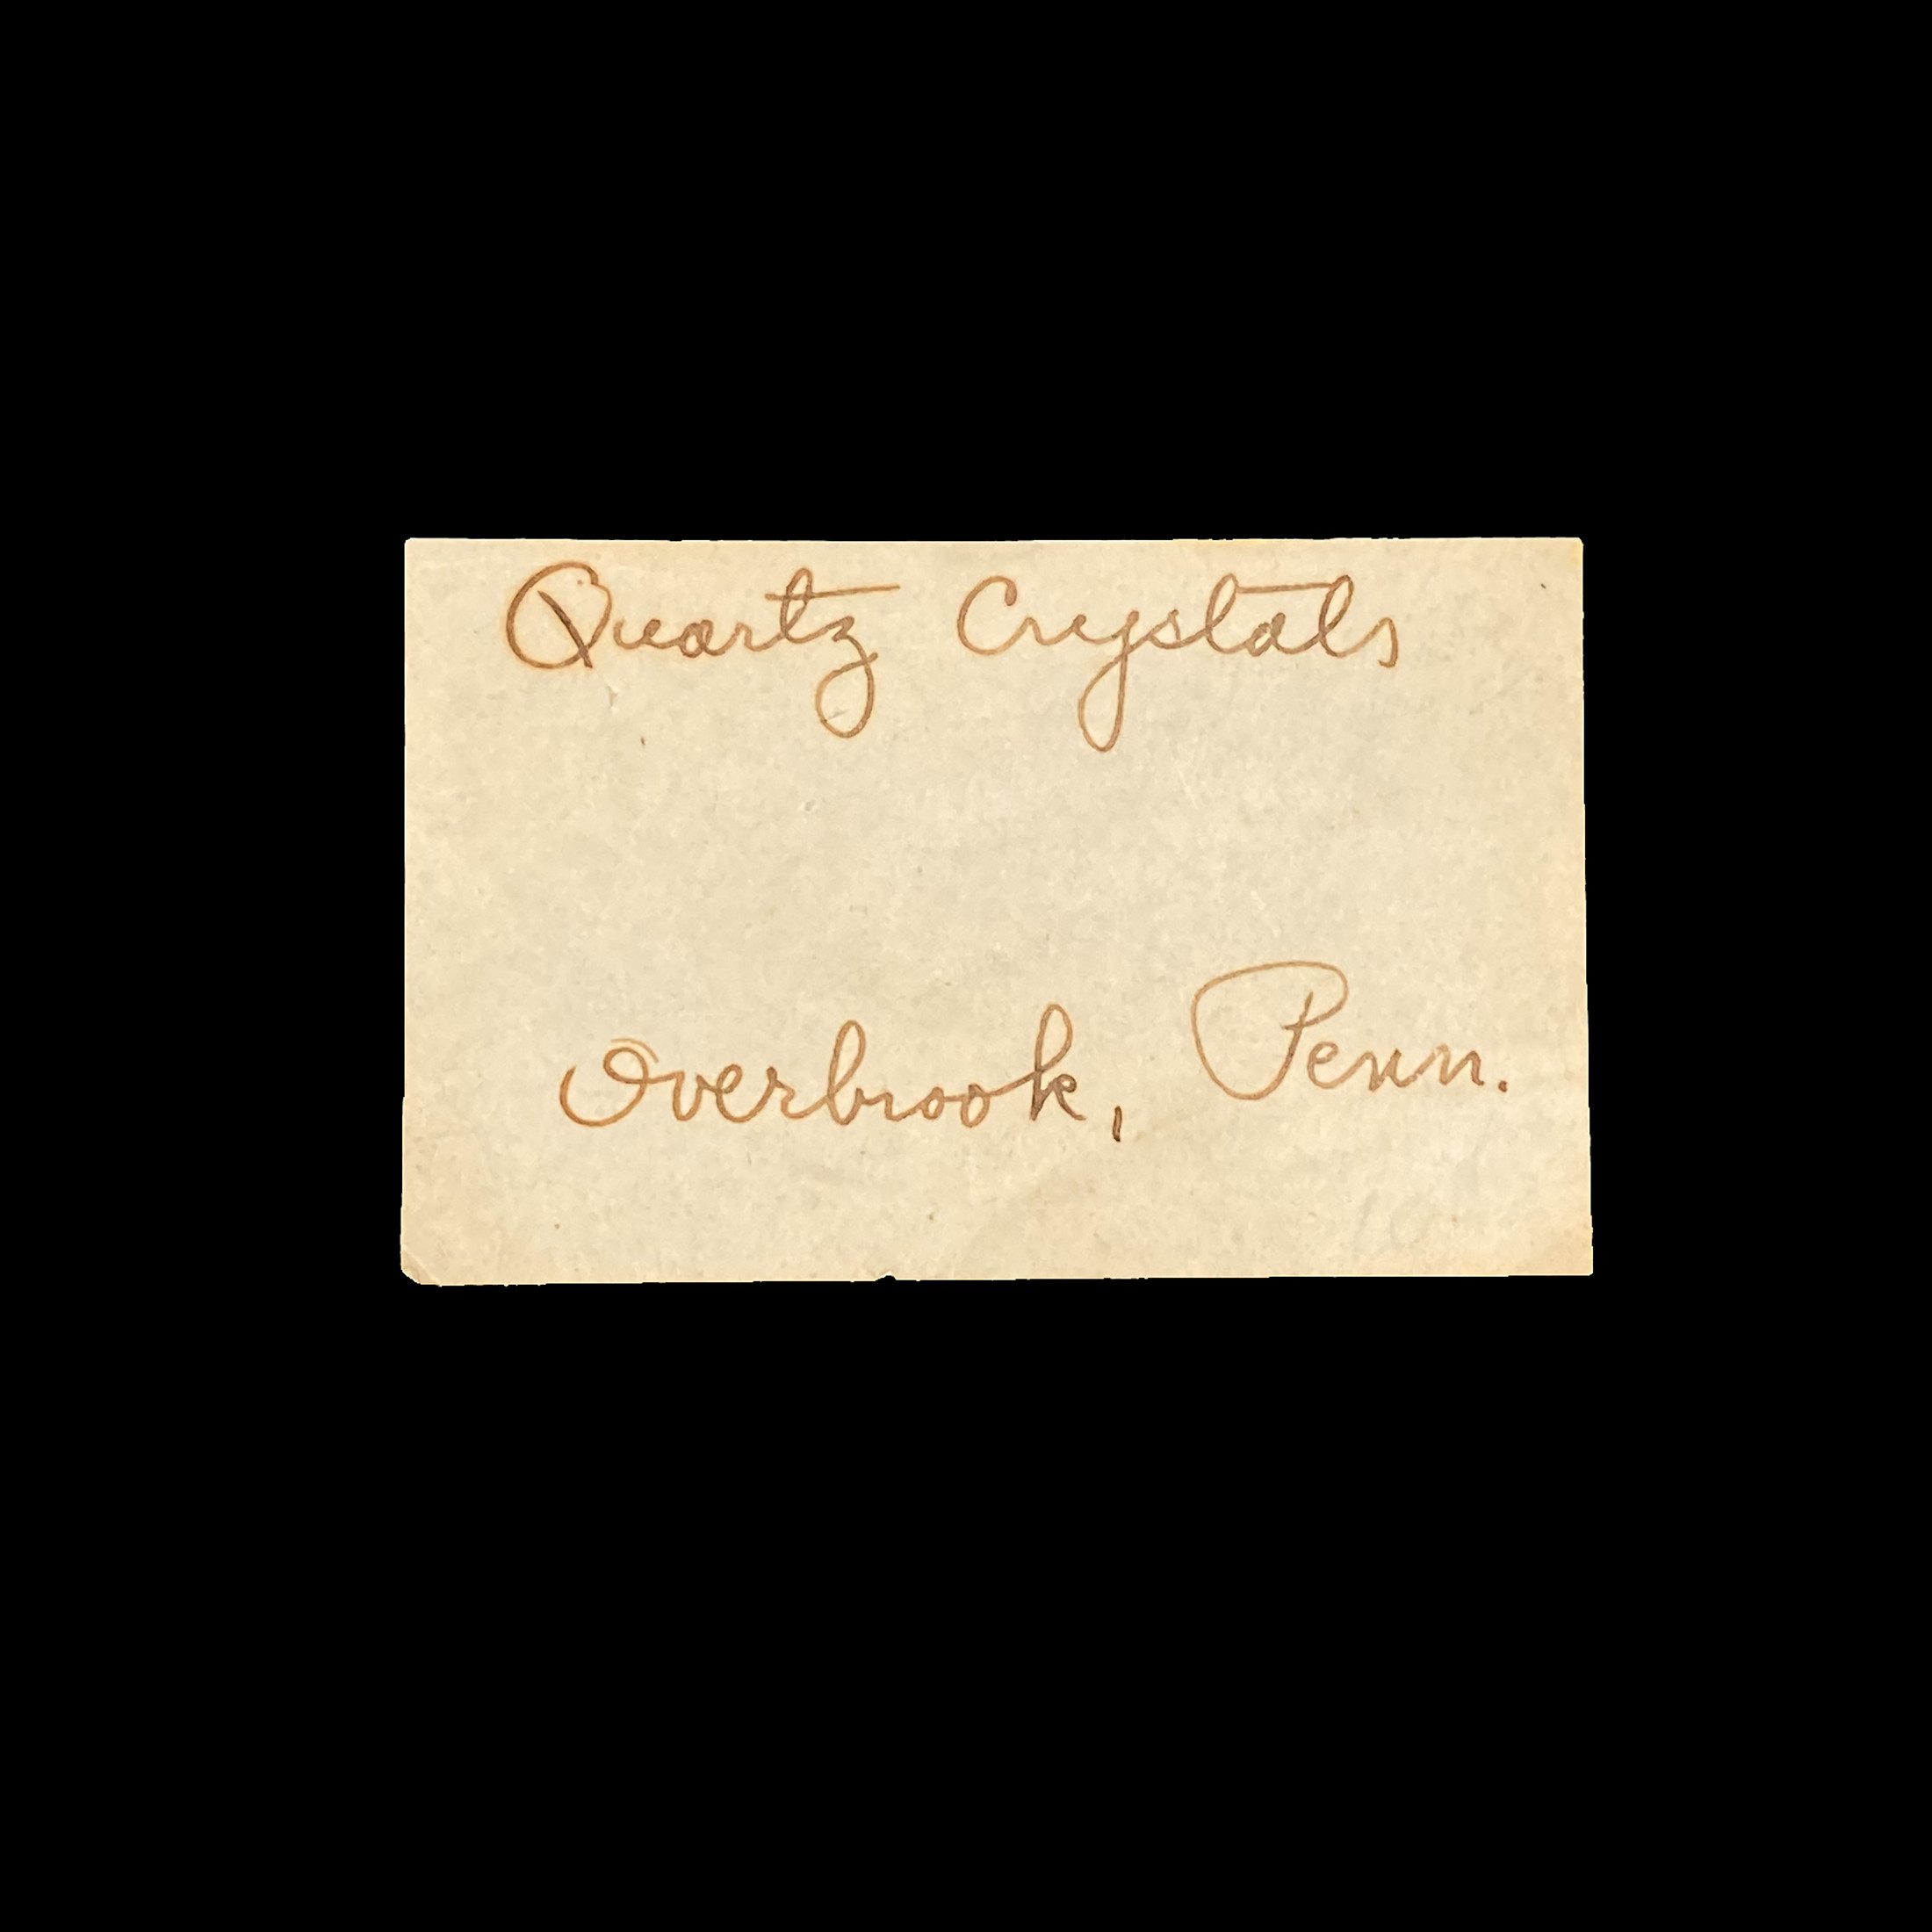 Quartz Crystals
Overbrook, Penn.